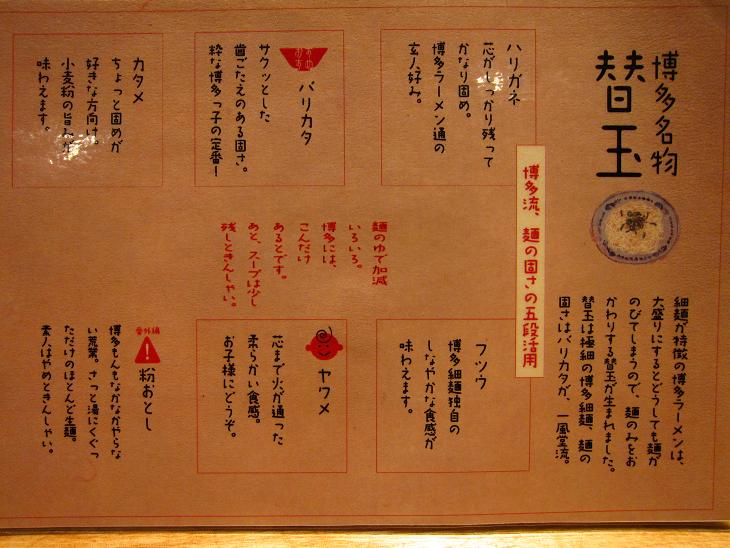 博多名物
替玉
細麺が特徴の博多ラーメンは、
大盛りにするとどうしても麺が
のびてしまうので、麺のみをお
かわりする替玉が生まれました。
替玉は極細の博多細麺、麺の
固さはバリカタが、一風堂流。
博多流、麺の固さの五段活用
ハリガネ
芯がしっかり残って
かなり固め。
博多ラーメン通の
玄人好み。
おすすめ
バリカタ
サクッとした
歯ごたえのある固さ。
粋な博多っ子の定番!
カタメ
ちょっと固めが
好きな方向け。
小麦粉の旨みが
味わえます。
麺のゆで加減
いろいろ。
博多には、
こんだけ
あるとです。
あと、スープは少し
残しときんしゃい。
フツウ
博多細麺独自の
しなやかな食感が
味わえます。
ヤワメ
芯まで火が通った
柔らかい食感。
お子様にどうぞ。
番外編
粉おとし
博多もんもなかなかやらな
い荒業。さっと湯にくぐっ
ただけのほとんど生麺。
素人はやめときんしゃい。